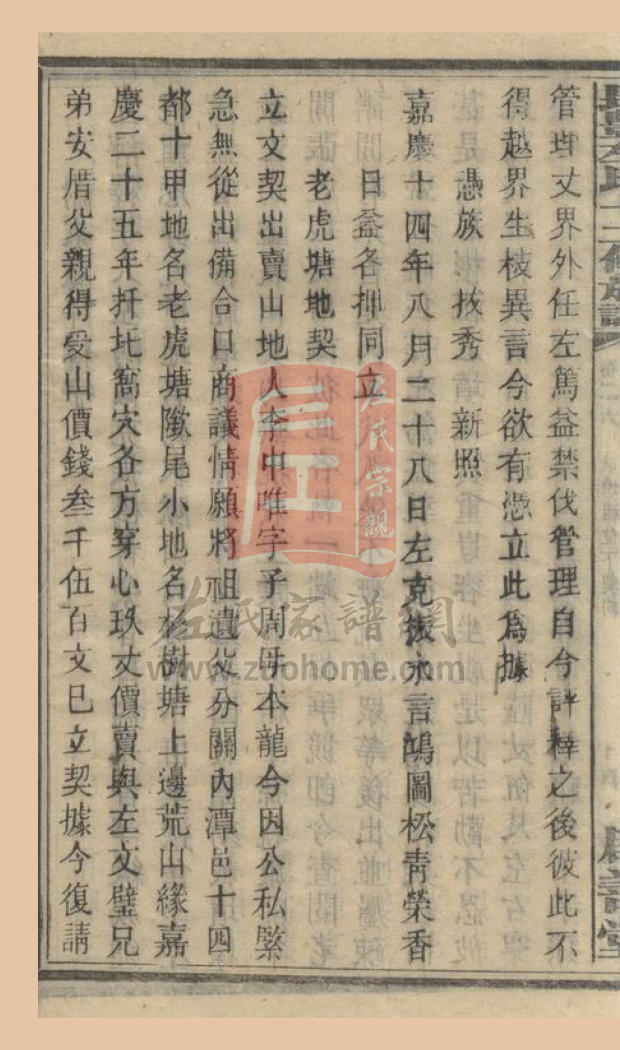 管堆丈界外任左篤益禁伐管理自今詳釋之後彼此不
得越界生枝異言今欲有憑立此爲據
憑族彬 拔秀 新照
嘉慶十四年八月二十八日左克振永言鴻圖松青榮香
日益各押同立
老虎塘地契
立文契出賣山地人李中唯字子周毋本龍今因公私緊
急無從出備合口商議情願將祖遺父分關內潭邑十四
都十甲地名老虎塘隞尾小地名杉樹塘上邊荒山緣嘉
慶二十五年扦圫窩穴各方穿心玖丈價賣與左文璧兄
弟安厝父親得受山價錢叁千伍百文已立契據今復請
左氏宗親
左氏家譜網
www.zuohome.com